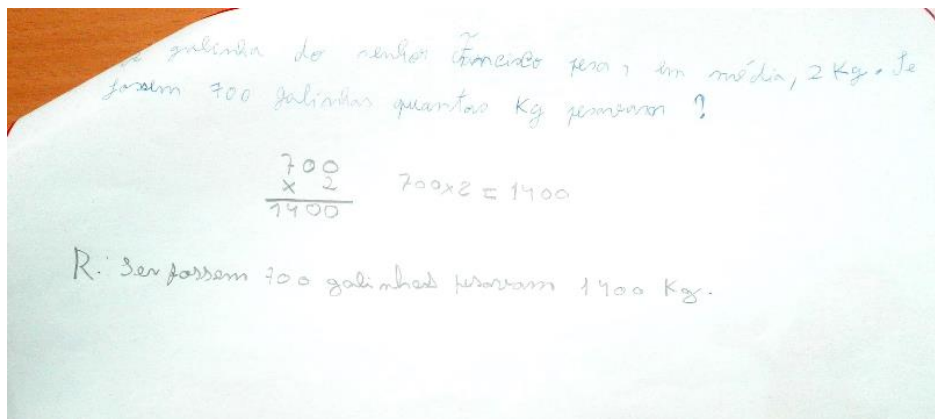 galinha do senhor Francisco pesa, em média, 2 Kg. Se
fossem 700 galinhas quantos Kg pesavam ?
700
x 2
1400
700x2 = 1400
R: Se fossem 700 galinhas pesavam 1400 Kg.